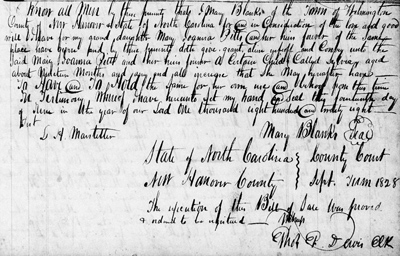 Know all Men by these presents that I Mary Blanks of the Town of Wilmington
County of New Hanover & State of North Carolina for and in Consideration of the love and good
will I have for my grand daughter Mary Joanna Pitts and her heirs forever of the same
place have given and by these presents doth give grant alien enfeoff and Convey unto the
Said Mary Joanna Pitts and her heirs forever A Certain Child Called Sylvia, aged
about Months and all increase that She may hereafter have
To Have and To Hold the same for her own use and behoof from this time
In Testimony Whereof I have hereunto set my hand and Seal this fourteenth day
of June in the year of our Lord One thousand eight hundred and twenty eight
Test
L. A. Marsteller Mary Blanks Seal
State of North Carolina } County Court
New Hanover County } Sept. Term 1828
The execution of this Bill of Sale was proved
& ordered to be registered
Thos. F. Davis Clk